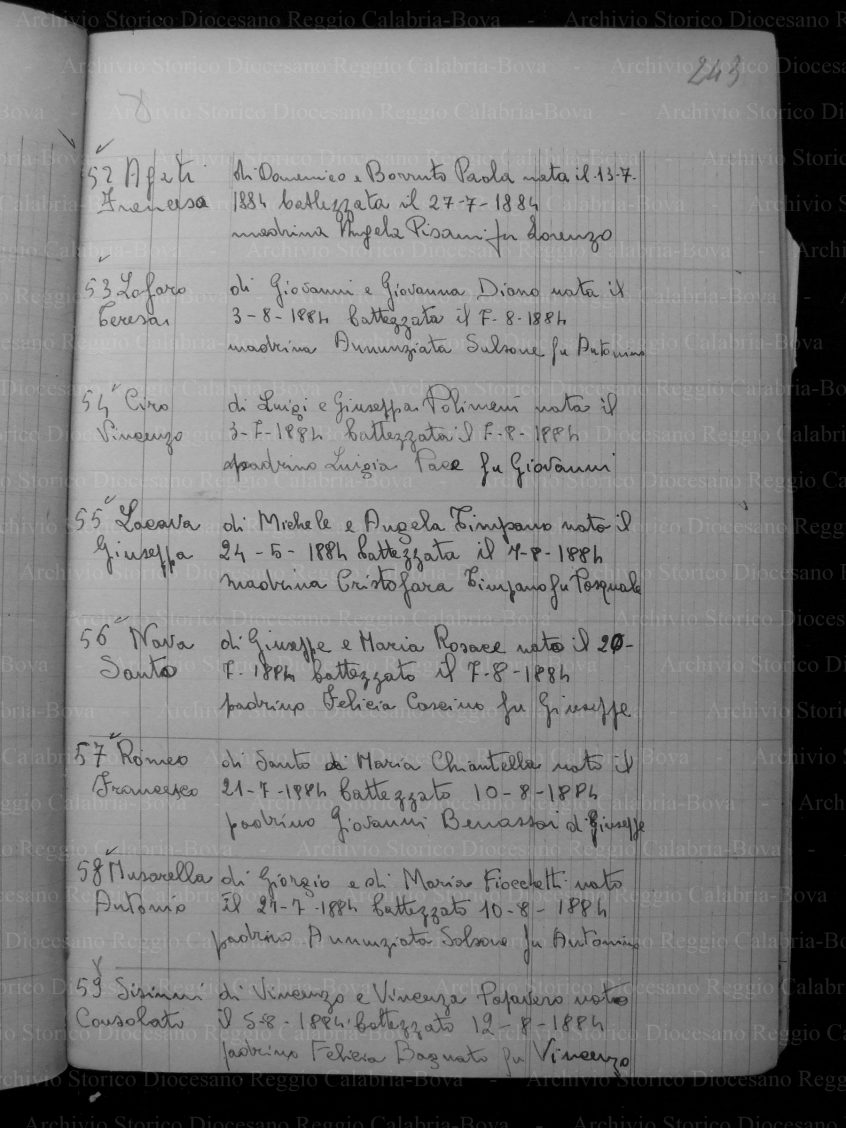 243
52 Ageti di Domenico e Borruto Paola nata il 13-7-
Francesca 1884 battezzata il 27-7-1884
madrina Angela Pisani fu Lorenzo
53 Lofaro di Giovanni e Giovanna Diano nata il
Teresa 3-8-1884 battezzata il 7-8-1884
madrina Annunziata Salsone fu Antonino
54 Ciro di Luigi e Giuseppa Polimeni nato il
Vincenzo 3-7-1884 battezzata il 7-8-1884
padrino Luigia Pace fu Giovanni
55 Lacava di Michele e Angela Timpano nata il
Giuseppa 24-5-1884 battezzata il 7-8-1884
madrina Cristofara Timpano fu Pasquale
56 Nava di Giuseppe e Maria Rosace nato il 20-
Santo 7-1884 battezzato il 7-8-1884
padrino Felicia Cascino fu Giuseppe
57 Romeo di Santo di Maria Chiantella nato il
Francesco 21-7-1884 battezzato 10-8-1884
padrino Giovanni Benassai di Giuseppe
58 Musarella di Giorgio e di Maria Fiocchetti nato
Antonio il 21-7-1884 battezzato 10-8-1884
padrino Annunziata Salsone fu Antonino
59 Sisinni di Vincenzo e Vincenza Papavero nato
Consolato il 5-8-1884 battezzato 12-8-1884
padrino Felicia Bagnato fu Vincenzo
Archivio Storico Diocesano Reggio Calabria-Bova